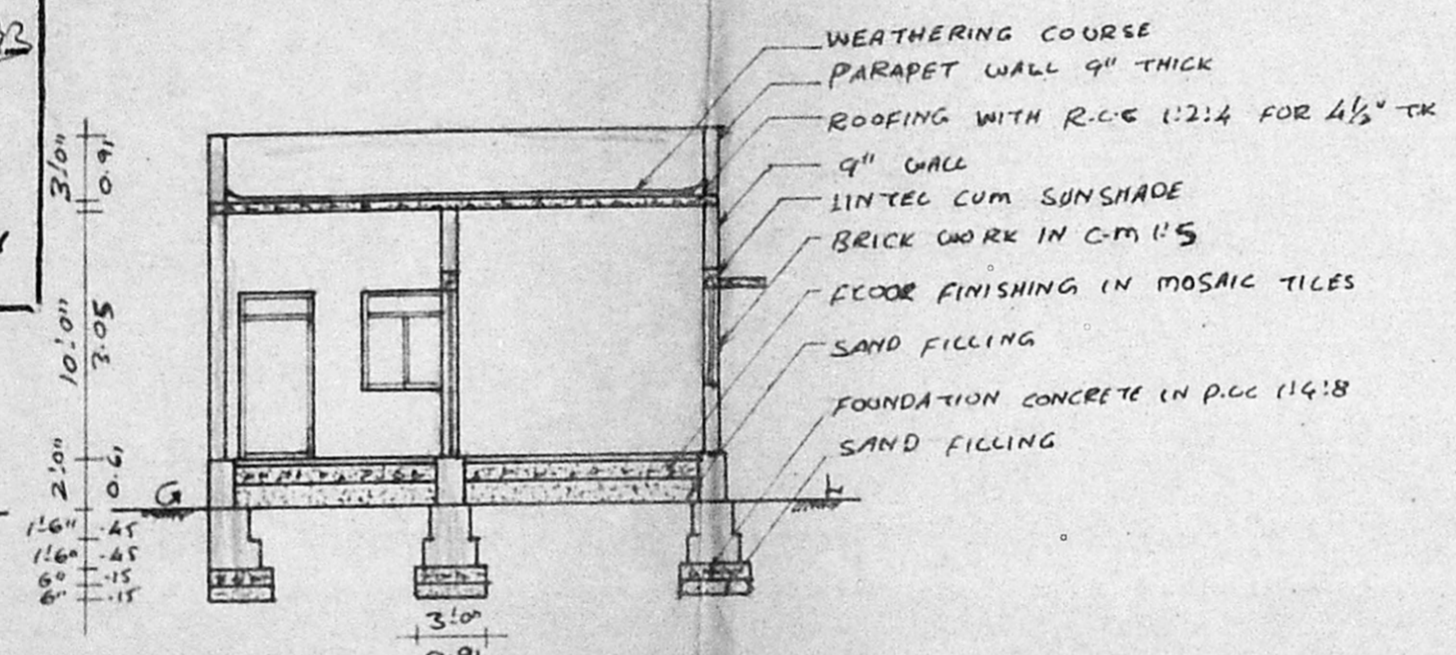 WEATHERING COURSE
PARAPET WALL 9" THICK
ROOFING WITH R.C.C 1:2:4 FOR 4½" TK
9" WALL
LINTEL CUM SUNSHADE
BRICK WORK IN C.M 1:5
FLOOR FINISHING IN MOSAIC TILES
SAND FILLING
FOUNDATION CONCRETE IN P.CC 1:4:8
SAND FILLING
3'0"
0.91
10'0"
3.05
2'0"
0.61
G
L
1'6" .45
1'6" .45
6" .15
6" .15
3'0"
0.91